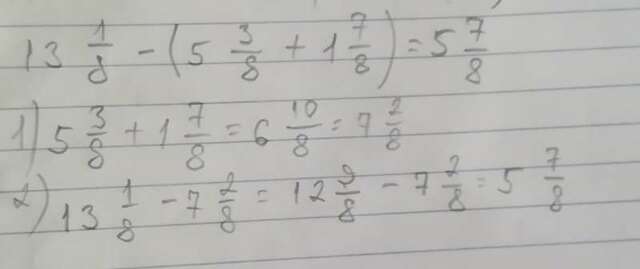 13 1/8 - (5 3/8 + 1 7/8) = 5 7/8
1) 5 3/8 + 1 7/8 = 6 10/8 = 7 2/8
2) 13 1/8 - 7 2/8 = 12 9/8 - 7 2/8 = 5 7/8